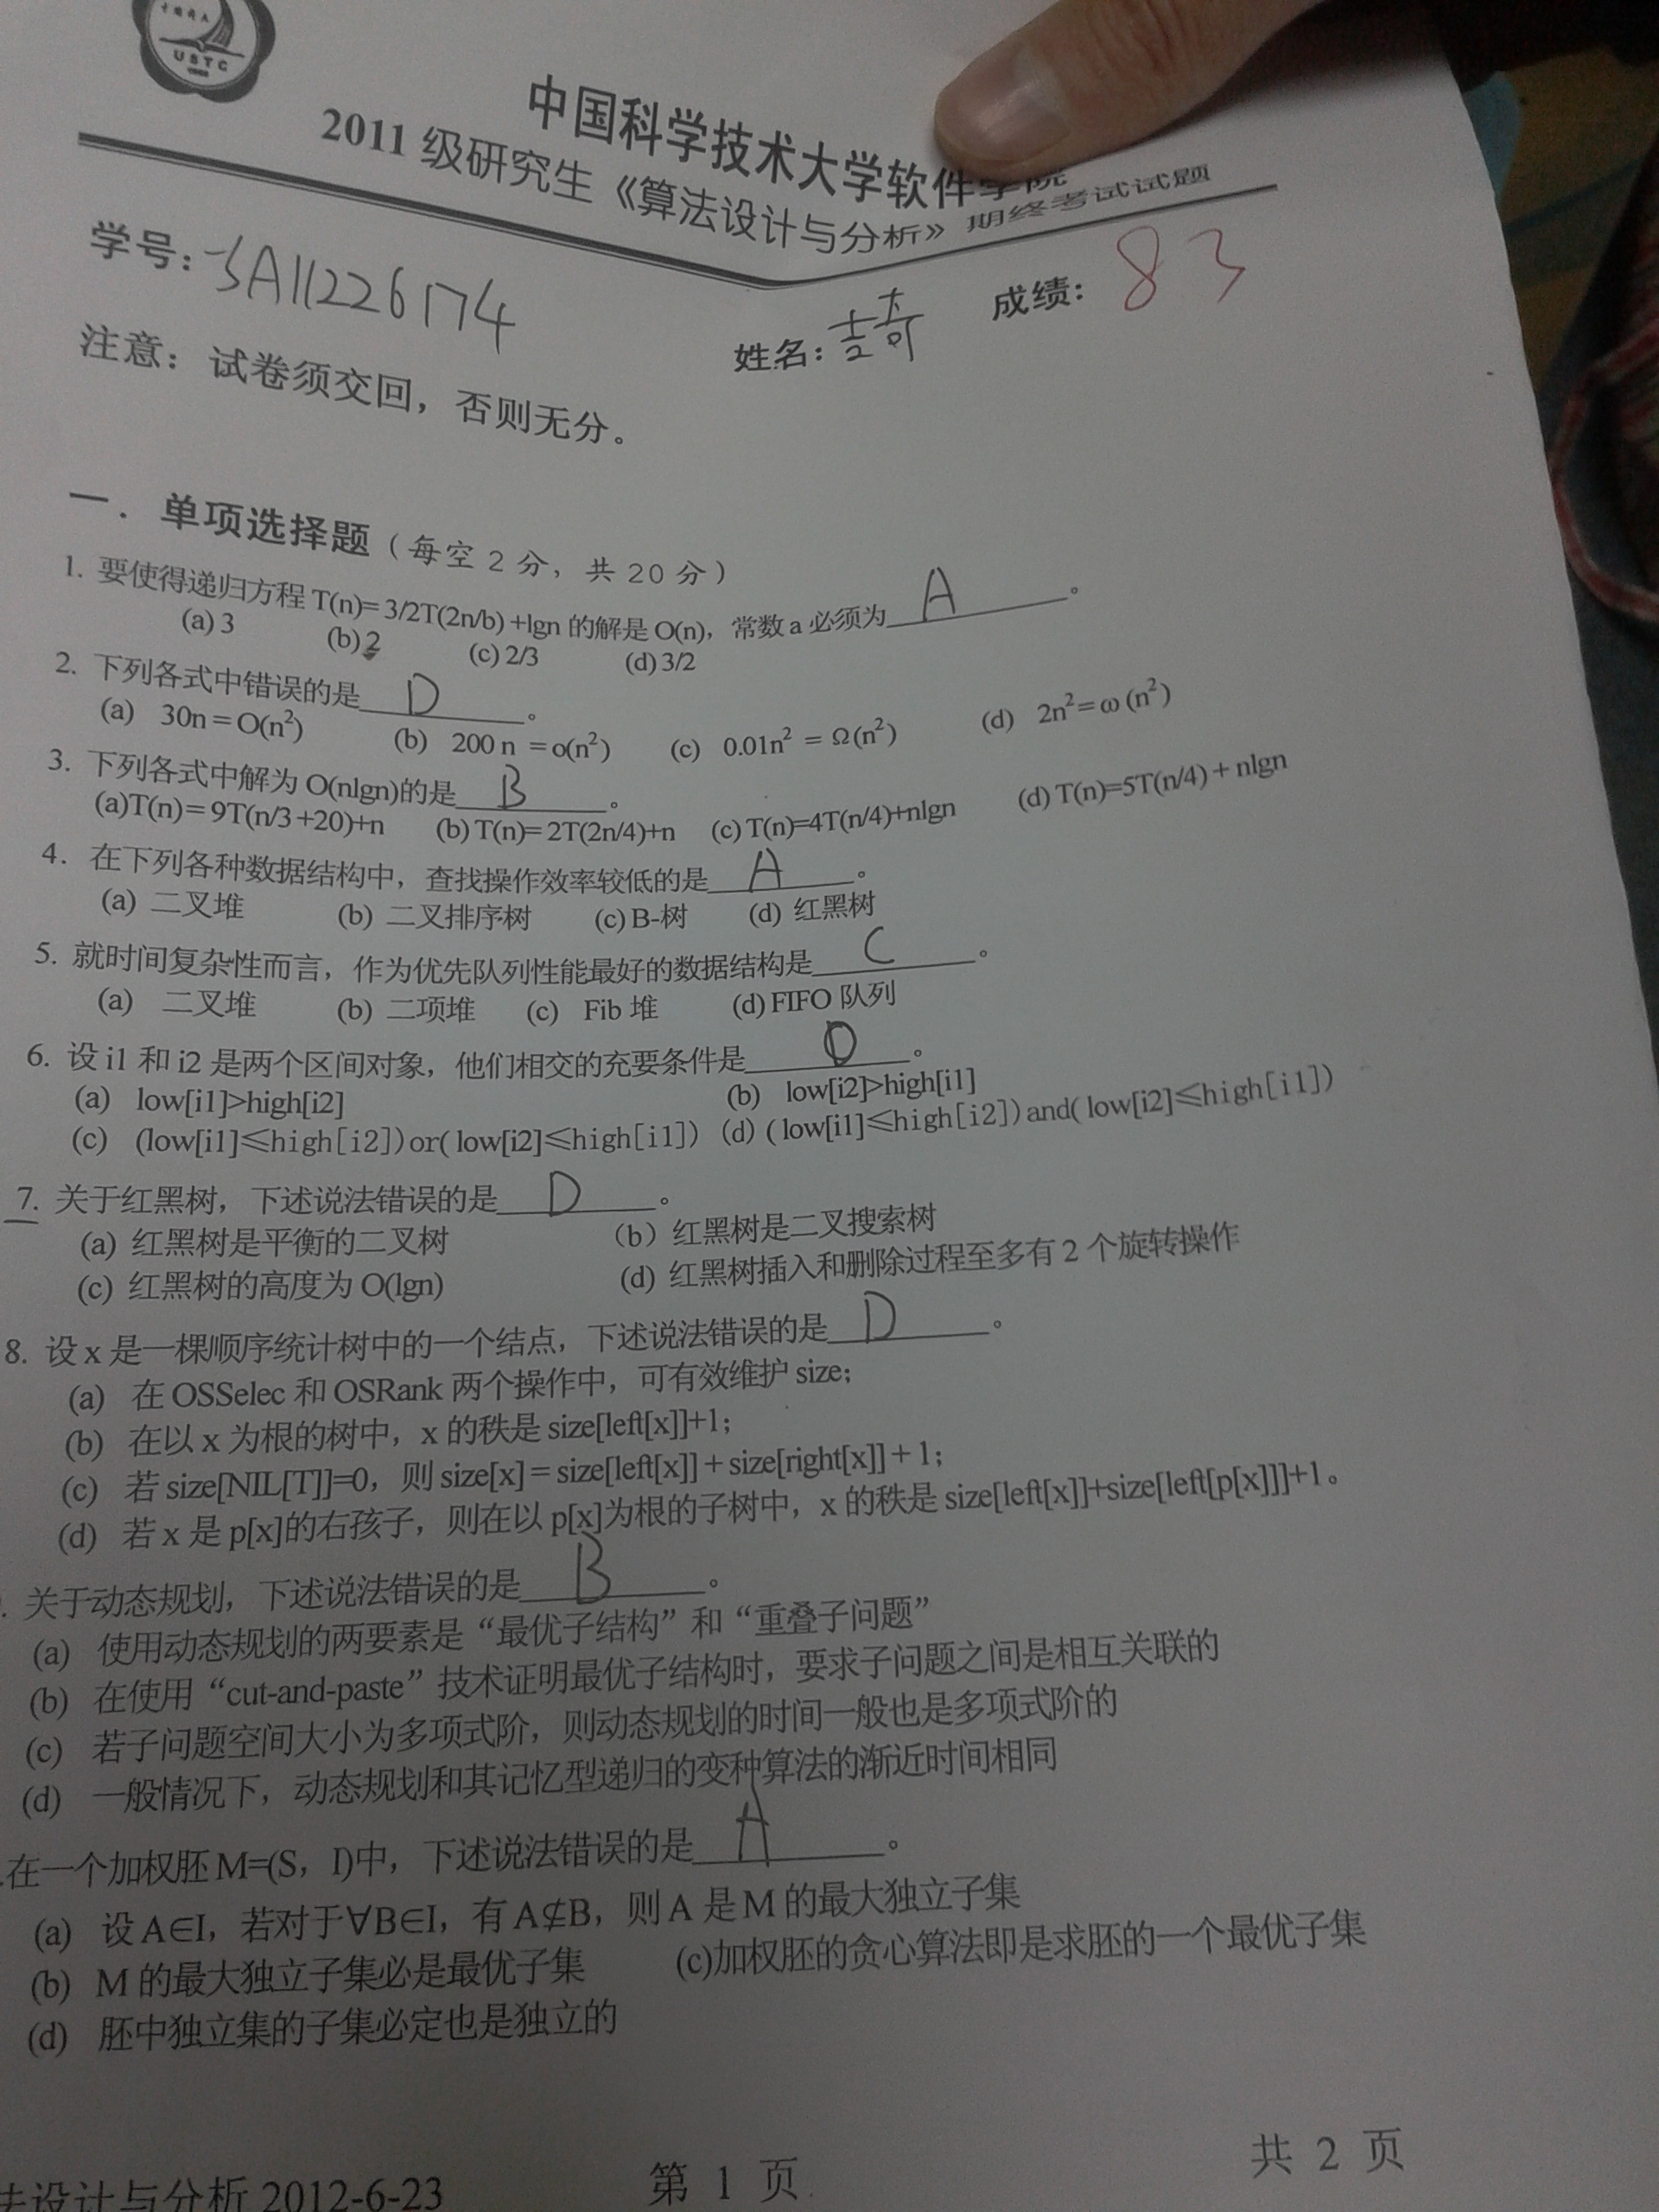 USTC
中国科学技术大学软件学院
2011 级研究生《算法设计与分析》期终考试试题
学号: SA11226174
姓名:
成绩: 83
注意：试卷须交回，否则无分。
一．单项选择题（每空 2 分，共 20 分）
1. 要使得递归方程 T(n)= 3/2T(2n/b) +lgn 的解是 O(n)，常数 a 必须为 A 。
(a) 3 (b) 2 (c) 2/3 (d) 3/2
2. 下列各式中错误的是 D 。
(a) 30n = O(n²) (b) 200 n = o(n²) (c) 0.01n² = Ω(n²) (d) 2n² = ω (n²)
3. 下列各式中解为 O(nlgn)的是 B 。
(a)T(n) = 9T(n/3 +20)+n (b) T(n)= 2T(2n/4)+n (c) T(n)=4T(n/4)+nlgn (d) T(n)=5T(n/4) + nlgn
4. 在下列各种数据结构中，查找操作效率较低的是 A 。
(a) 二叉堆 (b) 二叉排序树 (c) B-树 (d) 红黑树
5. 就时间复杂性而言，作为优先队列性能最好的数据结构是 C 。
(a) 二叉堆 (b) 二项堆 (c) Fib 堆 (d) FIFO 队列
6. 设 i1 和 i2 是两个区间对象，他们相交的充要条件是 D 。
(a) low[i1]>high[i2] (b) low[i2]>high[i1]
(c) (low[i1]≤high[i2])or( low[i2]≤high[i1]) (d) ( low[i1]≤high[i2])and( low[i2]≤high[i1])
7. 关于红黑树，下述说法错误的是 D 。
(a) 红黑树是平衡的二叉树 (b) 红黑树是二叉搜索树
(c) 红黑树的高度为 O(lgn) (d) 红黑树插入和删除过程至多有 2 个旋转操作
8. 设 x 是一棵顺序统计树中的一个结点，下述说法错误的是 D 。
(a) 在 OSSelec 和 OSRank 两个操作中，可有效维护 size；
(b) 在以 x 为根的树中，x 的秩是 size[left[x]]+1；
(c) 若 size[NIL[T]]=0，则 size[x] = size[left[x]] + size[right[x]] + 1；
(d) 若 x 是 p[x]的右孩子，则在以 p[x]为根的子树中，x 的秩是 size[left[x]]+size[left[p[x]]]+1。
. 关于动态规划，下述说法错误的是 B 。
(a) 使用动态规划的两要素是“最优子结构”和“重叠子问题”
(b) 在使用“cut-and-paste”技术证明最优子结构时，要求子问题之间是相互关联的
(c) 若子问题空间大小为多项式阶，则动态规划的时间一般也是多项式阶的
(d) 一般情况下，动态规划和其记忆型递归的变种算法的渐近时间相同
.在一个加权胚 M=(S，I)中，下述说法错误的是 A 。
(a) 设 A∈I，若对于∀B∈I，有 A⊈B，则 A 是 M 的最大独立子集
(b) M 的最大独立子集必是最优子集 (c)加权胚的贪心算法即是求胚的一个最优子集
(d) 胚中独立集的子集必定也是独立的
法设计与分析 2012-6-23 第 1 页 共 2 页